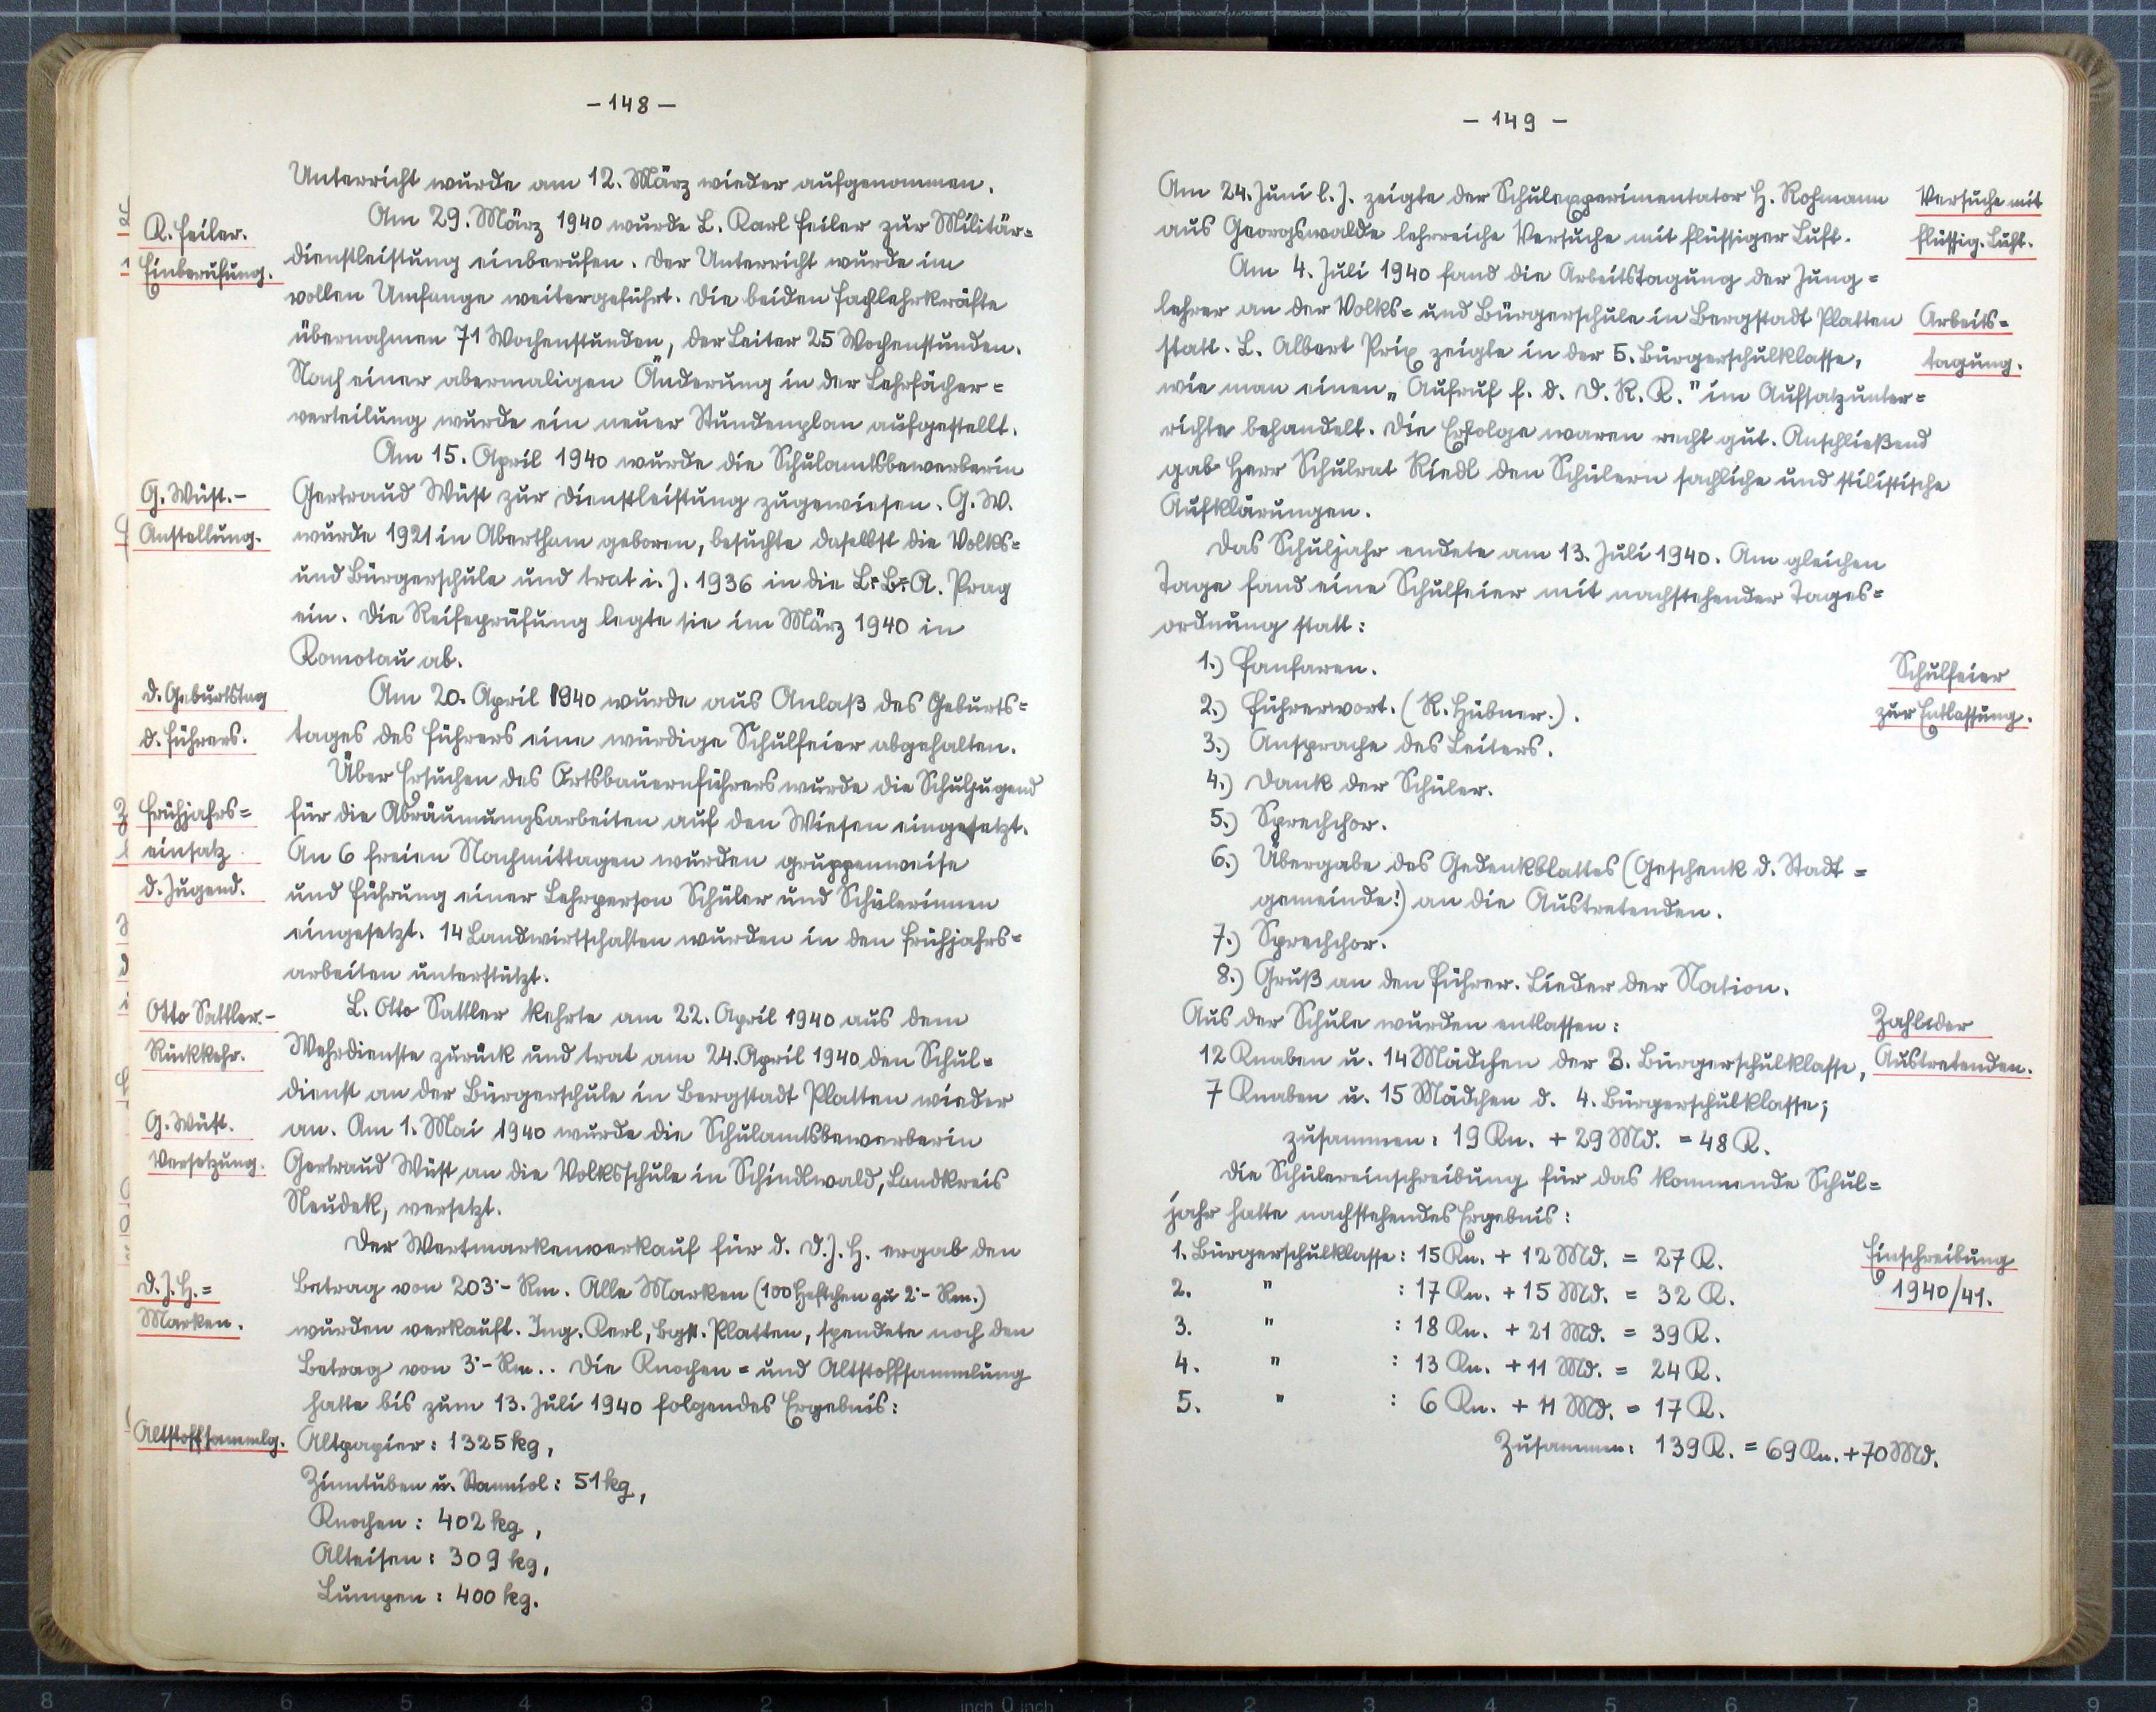 - 148 -
Unterricht wurde am 12. März wieder aufgenommen.
R. Feiler.
Einberufung.
Am 29. März 1940 wurde L. Karl Feiler zur Militär=
dienstleistung einberufen. Der Unterricht wurde im
vollen Umfange weitergeführt. Die beiden Fachlehrkräfte
übernahmen 71 Wochenstunden, der Leiter 25 Wochenstunden.
Nach einer abermaligen Änderung in der Lehrfächer=
verteilung wurde ein neuer Stundenplan aufgestellt.
G. Wüst.-
Anstellung.
Am 15. April 1940 wurde die Schulamtsbewerberin
Gertraud Wüst zur Dienstleistung zugewiesen. G. W.
wurde 1921 in Abertham geboren, besuchte daselbst die Volks=
und Bürgerschule und trat i. J. 1936 in die L.B.A. Prag
ein. Die Reifeprüfung legte sie im März 1940 in
Komotau ab.
d. Geburtstag
d. Führers.
Am 20. April 1940 wurde aus Anlaß des Geburts=
tages des Führers eine würdige Schulfeier abgehalten.
Frühjahrs=
einsatz
d. Jugend.
Über Ersuchen des Ortsbauernführers wurde die Schuljugend
für die Abräumungsarbeiten auf den Wiesen eingesetzt.
An 6 freien Nachmittagen wurden gruppenweise
und Führung einer Lehrperson Schüler und Schülerinnen
eingesetzt. 14 Landwirtschaften wurden in den Frühjahrs=
arbeiten unterstützt.
Otto Sattler.-
Rückkehr.
L. Otto Sattler kehrte am 22. April 1940 aus dem
Wehrdienste zurück und trat am 24. April 1940 den Schul=
dienst an der Bürgerschule in Bergstadt Platten wieder
G. Wüst.
Versetzung.
an. Am 1. Mai 1940 wurde die Schulamtsbewerberin
Gertraud Wüst an die Volksschule in Schindlwald, Landkreis
Neudek, versetzt.
D.J.H.=
Marken.
Der Wertmarkenverkauf für d. D.J.H. ergab den
Betrag von 203·- Rm. Alle Marken (100 Heftchen zu 2·- Rm.)
wurden verkauft. Ing. Kerl, Bgst. Platten, spendete noch den
Betrag von 3·- Rm.. Die Knochen= und Altstoffsammlung
hatte bis zum 13. Juli 1940 folgendes Ergebnis:
Altstoffsammlg.
Altpapier: 1325 kg,
Zinntuben u. Stanniol: 51 kg,
Knochen: 402 kg,
Alteisen: 309 kg,
Lumpen: 400 kg.
- 149 -
Am 24. Juni l. J. zeigte der Schulexperimentator H. Rohmann
aus Georgswalde lehrreiche Versuche mit flüssiger Luft.
Versuche mit
flüssig. Luft.
Am 4. Juli 1940 fand die Arbeitstagung der Jung=
lehrer an der Volks= und Bürgerschule in Bergstadt Platten
statt. L. Albert Prix zeigte in der 5. Bürgerschulklasse,
wie man einen „Aufruf f. d. D. R. K." im Aufsatzunter=
richte behandelt. Die Erfolge waren recht gut. Anschließend
gab Herr Schulrat Riedl den Schülern sachliche und stilistische
Aufklärungen.
Arbeits=
tagung.
Das Schuljahr endete am 13. Juli 1940. Am gleichen
Tage fand eine Schulfeier mit nachstehender Tages=
ordnung statt:
Schulfeier
zur Entlassung.
1.) Fanfaren.
2.) Führerwort. (R. Hübner.).
3.) Ansprache des Leiters.
4.) Dank der Schüler.
5.) Sprechchor.
6.) Übergabe des Gedenkblattes (Geschenk d. Stadt=
gemeinde!) an die Austretenden.
7.) Sprechchor.
8.) Gruß an den Führer. Lieder der Nation.
Aus der Schule wurden entlassen:
Zahl der
Austretenden.
12 Knaben u. 14 Mädchen der 3. Bürgerschulklasse,
7 Knaben u. 15 Mädchen d. 4. Bürgerschulklasse;
zusammen: 19 Kn. + 29 Md. = 48 K.
Die Schülereinschreibung für das kommende Schul=
jahr hatte nachstehendes Ergebnis:
Einschreibung
1940/41.
1. Bürgerschulklasse: 15 Kn. + 12 Md. = 27 K.
2. " : 17 Kn. + 15 Md. = 32 K.
3. " : 18 Kn. + 21 Md. = 39 K.
4. " : 13 Kn. + 11 Md. = 24 K.
5. " : 6 Kn. + 11 Md. = 17 K.
Zusammen: 139 K. = 69 Kn. + 70 Md.
8 7 6 5 4 3 2 1 inch 0 inch 1 2 3 4 5 6 7 8 9